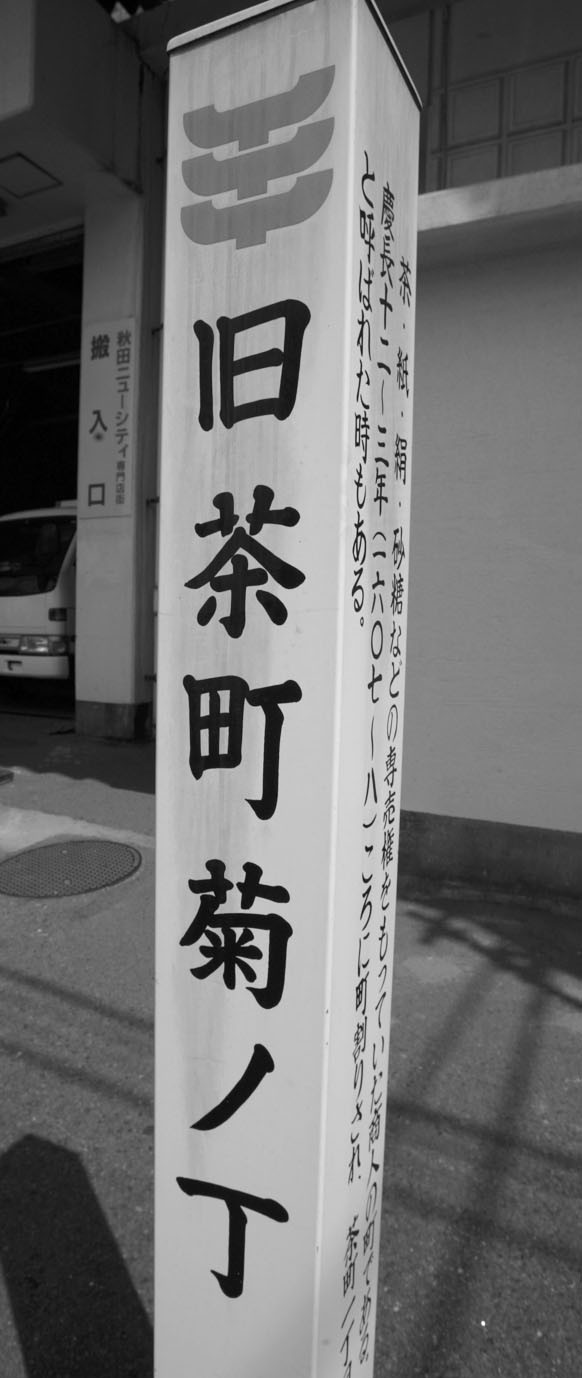 旧茶町菊ノ丁
茶・紙・絹・砂糖などの専売権をもっていた商人の町である。
慶長十二〜三年（一六〇七〜八）ころに町割りされ、茶町一丁
と呼ばれた時もある。
秋田ニューシティ専門店街
搬入口